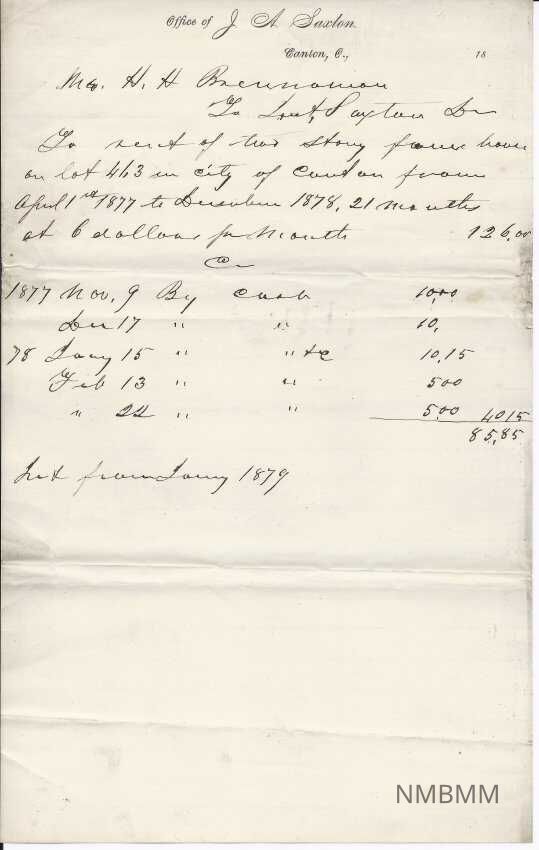 Office of J. A. Saxton.
Canton, O., 18
Mr. H. H. Brennaman
To Jas. A. Saxton Dr
To rent of two story frame house
on lot 463 in city of Canton from
April 1st 1877 to December 1878, 21 months
at 6 dollars per Month 126,00
Cr
1877 Nov, 9 By cash 1000
Dec 17 " " 10,
78 Jany 15 " " &c 10,15
Feb 13 " " 500
" 22 " " 5,00 4015
85,85
Int from Jany 1879
NMBMM